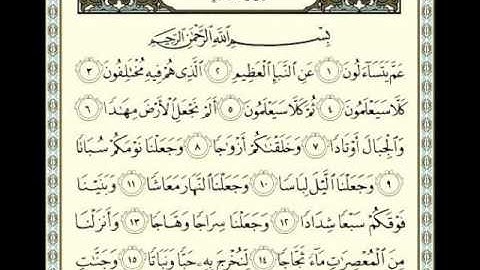 بِسْمِ ٱللَّهِ ٱلرَّحْمَٰنِ ٱلرَّحِيمِ
عَمَّ يَتَسَآءَلُونَ ١ عَنِ ٱلنَّبَإِ ٱلْعَظِيمِ ٢ ٱلَّذِى هُمْ فِيهِ مُخْتَلِفُونَ ٣
كَلَّا سَيَعْلَمُونَ ٤ ثُمَّ كَلَّا سَيَعْلَمُونَ ٥ أَلَمْ نَجْعَلِ ٱلْأَرْضَ مِهَٰدًا ٦
وَٱلْجِبَالَ أَوْتَادًا ٧ وَخَلَقْنَٰكُمْ أَزْوَٰجًا ٨ وَجَعَلْنَا نَوْمَكُمْ سُبَاتًا
٩ وَجَعَلْنَا ٱلَّيْلَ لِبَاسًا ١٠ وَجَعَلْنَا ٱلنَّهَارَ مَعَاشًا ١١ وَبَنَيْنَا
فَوْقَكُمْ سَبْعًا شِدَادًا ١٢ وَجَعَلْنَا سِرَاجًا وَهَّاجًا ١٣ وَأَنزَلْنَا
مِنَ ٱلْمُعْصِرَٰتِ مَآءً ثَجَّاجًا ١٤ لِّنُخْرِجَ بِهِۦ حَبًّا وَنَبَاتًا ١٥ وَجَنَّٰتٍ